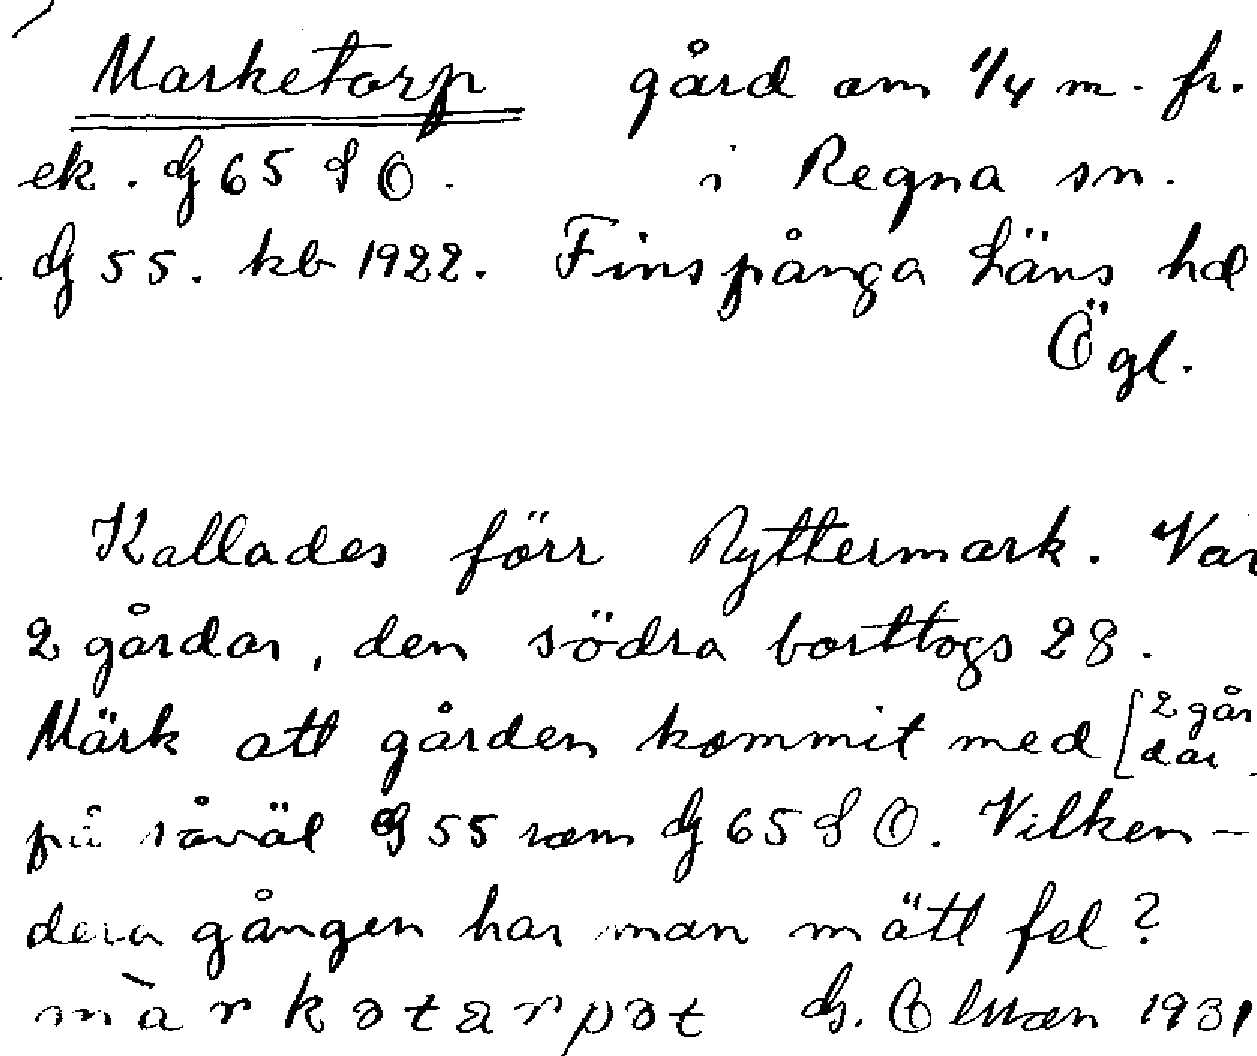 Marketorp gård om 1/4 m. fr.
ek. G 65 S O. i Regna sn.
G 55. kb 1922. Finspånga läns hd
Ögl.
Kallades förr Ryttermark. Var
2 gårdar, den södra borttogs 28.
Märk att gården kommit med [2 går
dar
på såväl G 55 som G 65 S O. Vilken-
dera gången har man mätt fel?
màrkətarpət G. 1931